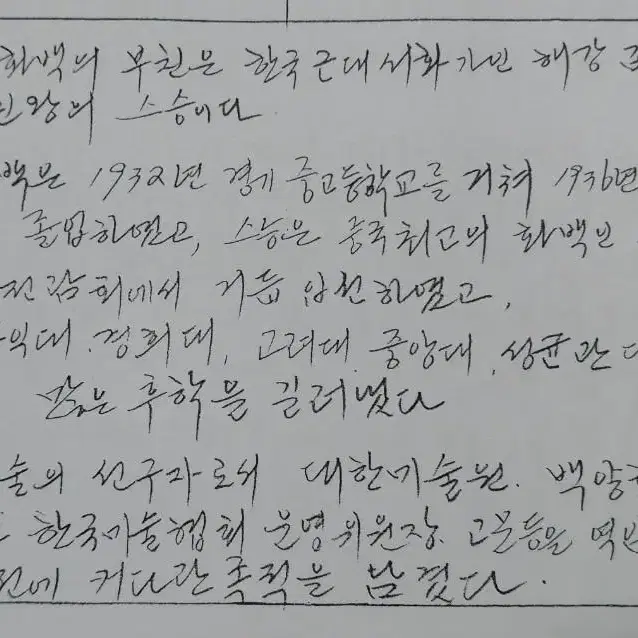 화백의 부친은 한국 근대 서화가인 해강
인왕의 스승이다
백은 1932년 경기 중고등학교를 거쳐 1936년
졸업하였고, 스승은 중국 최고의 화백인
전람회에서 거듭 입선하였고,
익대. 경희대, 고려대. 중앙대, 성균관대
많은 후학을 길러냈다
술의 선구자로서 대한미술원. 백양
한국미술협회 운영위원장. 고문등을 역임
전에 커다란 족적을 남겼다.